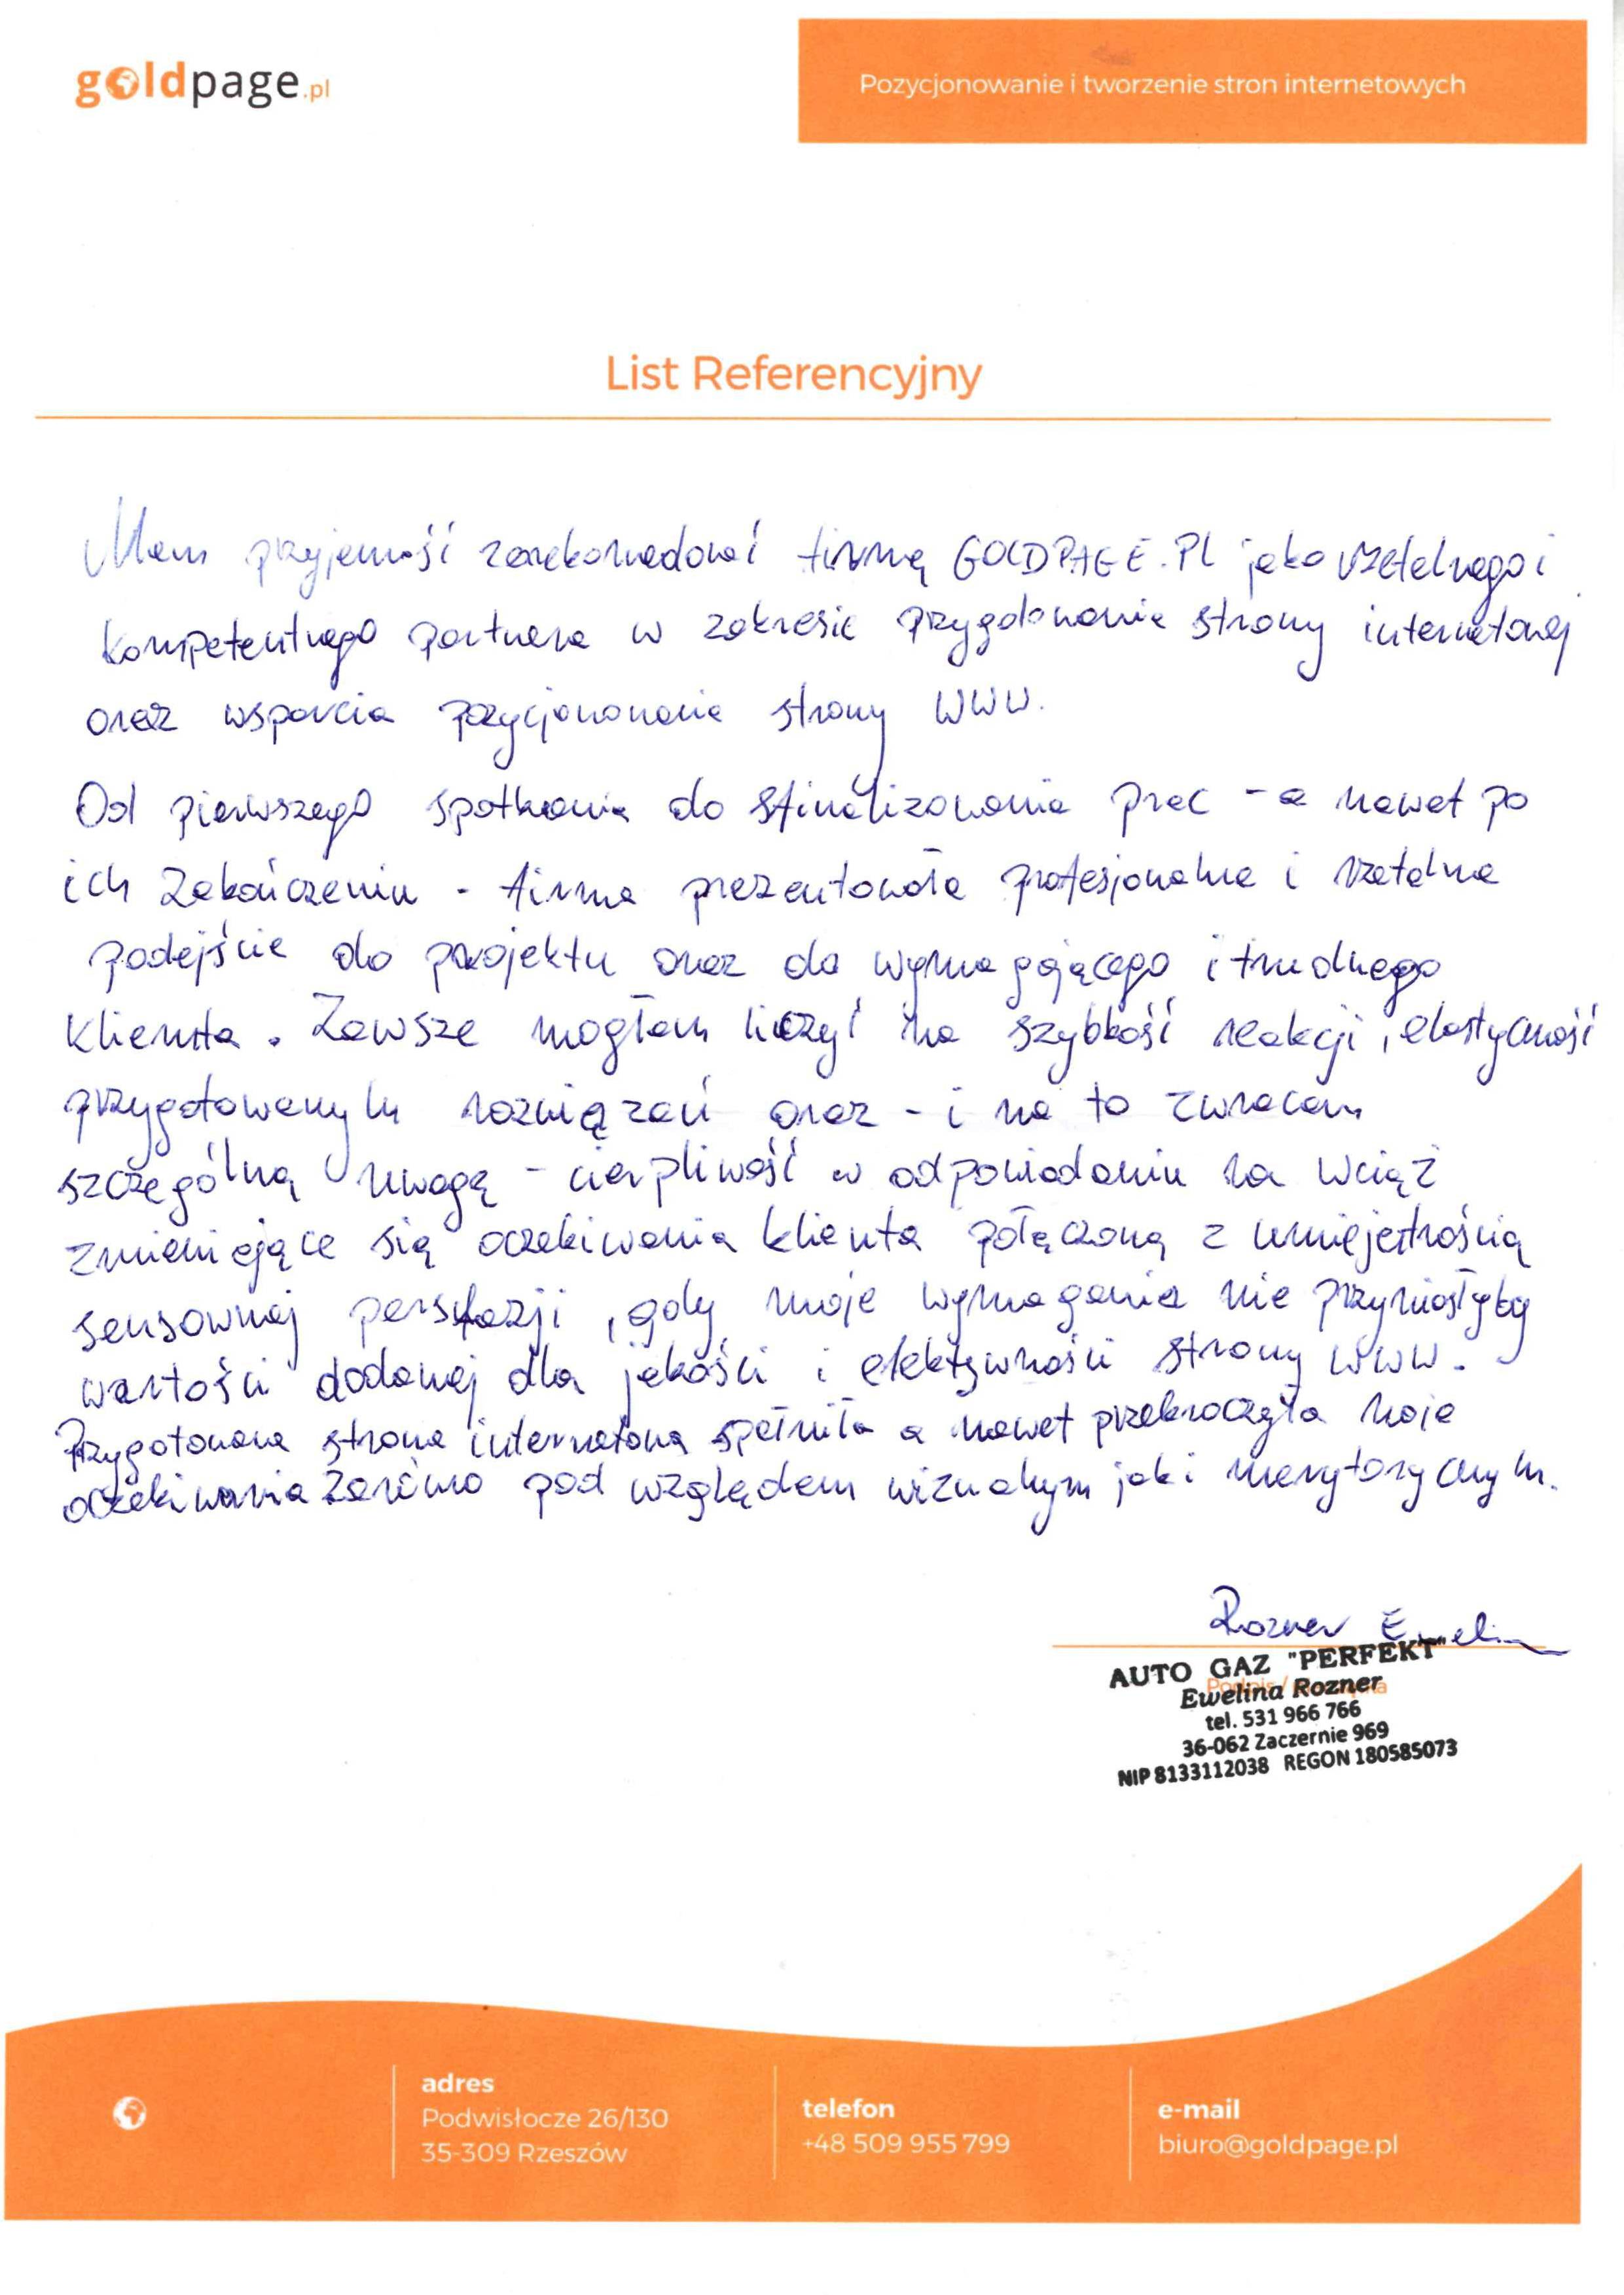 goldpage.pl
Pozycjonowanie i tworzenie stron internetowych
List Referencyjny
Mam przyjemność zarekomedować firmę GOLDPAGE.PL jako rzetelnego i
kompetentnego partnera w zakresie przygotowania strony internetowej
oraz wsparcia pozycjonowania strony WWW.
Od pierwszego spotkania do sfinalizowania prac - a nawet po
ich zakończeniu - firma prezentowała profesjonalne i rzetelne
podejście do projektu oraz do wymagającego i trudnego
klienta. Zawsze mogłam liczyć na szybkość reakcji, elastyczność
przygotowanych rozwiązań oraz - i na to zwracam
szczególną uwagę - cierpliwość w odpowiadaniu na wciąż
zmieniające się oczekiwania klienta połączoną z umiejętnością
sensownej perswazji, gdy moje wymagania nie przyniosłyby
wartości dodanej dla jakości i efektywności strony www.
Przygotowana strona internetowa spełniła a nawet przekroczyła moje
oczekiwania zarówno pod względem wizualnym jak i merytorycznym.
Rozner Ewelina
AUTO GAZ "PERFEKT"
Podpis /
Ewelina Rozner
tel. 531 966 766
36-062 Zaczernie 969
NIP 8133112038 REGON 180585073
adres
Podwisłocze 26/130
35-309 Rzeszów
telefon
+48 509 955 799
e-mail
biuro@goldpage.pl